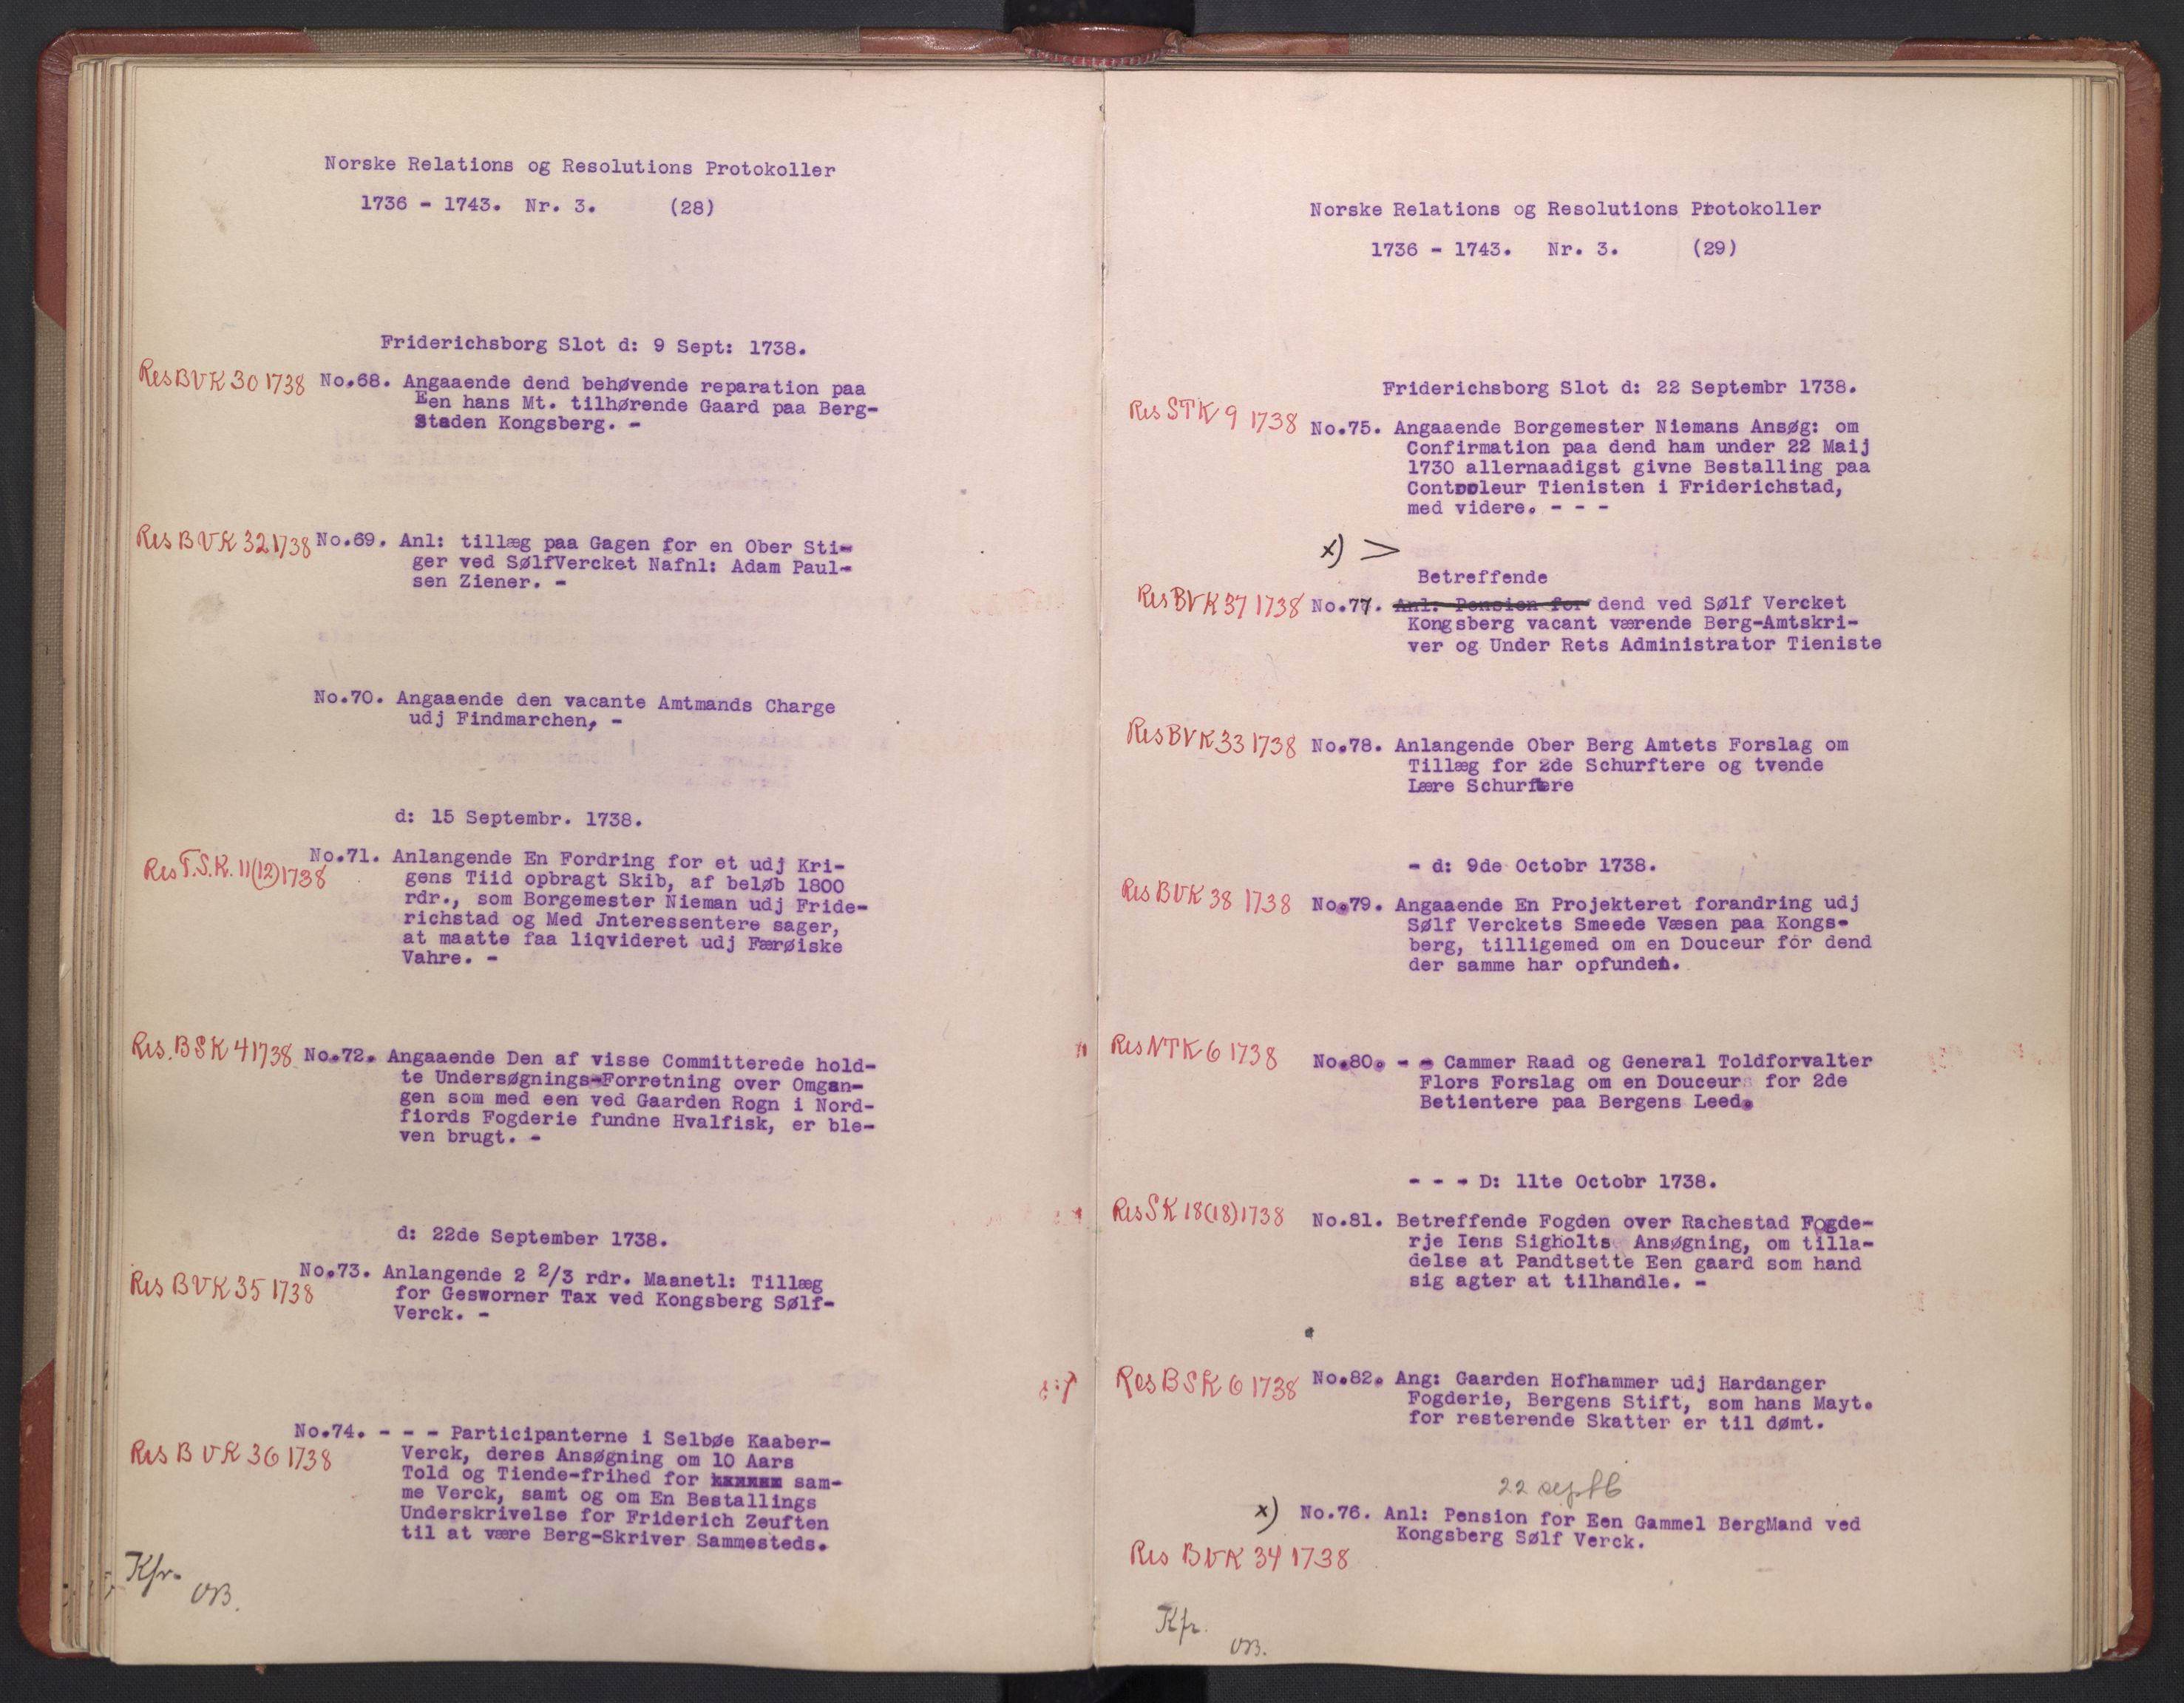 Norske Relations og Resolutions Protokoller
1736 - 1743. Nr. 3. (28)
Friderichsborg Slot d: 9 Sept: 1738.
Res BVK 30 1738 No.68. Angaaende dend behøvende reparation paa
Een hans Mt. tilhørende Gaard paa Berg-
Staden Kongsberg. -
Res BVK 32 1738 No.69. Anl: tillæg paa Gagen for en Ober Sti-
ger ved SølfVercket Nafnl: Adam Paul-
sen Ziener. -
No.70. Angaaende den vacante Amtmands Charge
udj Findmarchen, -
d: 15 Septembr. 1738.
Res T.S.K. 11(12) 1738 No.71. Anlangende En Fordring for et udj Kri-
gens Tiid opbragt Skib, af beløb 1800
rdr., som Borgemester Nieman udj Fride-
richstad og Med Jnteressentere sager,
at maatte faa liqvideret udj Færøiske
Vahre. -
Res. BSK 4 1738 No.72. Angaaende Den af visse Committerede hold-
te Undersøgnings-Forretning over Omgan-
gen som med een ved Gaarden Rogn i Nord-
fiords Fogderie fundne Hvalfisk, er ble-
ven brugt. -
d: 22de September 1738.
Res BVK 35 1738 No.73. Anlangende 2 2/3 rdr. Maanetl: Tillæg
for Gesworner Tax ved Kongsberg Sølf-
Verck. -
Res BVK 36 1738 No.74. - - - Participanterne i Selbøe Kaaber-
Verck, deres Ansøgning om 10 Aars
Told og Tiende-frihed for sam-
me Verck, samt og om En Bestallings
Underskrivelse for Friderich Zeuften
til at være Berg-Skriver Sammesteds.
Kfr.
OB.
Norske Relations og Resolutions Protokoller
1736 - 1743. Nr. 3. (29)
Friderichsborg Slot d: 22 Septembr 1738.
Res STK 9 1738 No.75. Angaaende Borgemester Niemans Ansøg: om
Confirmation paa dend ham under 22 Maij
1730 allernaadigst givne Bestalling paa
Controleur Tienisten i Friderichstad,
med videre. - - -
x) >
Betreffende
Res BVK 37 1738 No.77. Anl: Pension for dend ved Sølf Vercket
Kongsberg vacant værende Berg-Amtskri-
ver og Under Rets Administrator Tieniste
Res BVK 33 1738 No.78. Anlangende Ober Berg Amtets Forslag om
Tillæg for 2de Schurftere og tvende
Lære Schurftere
- d: 9de Octobr 1738.
Res BVK 38 1738 No.79. Angaaende En Projekteret forandring udj
Sølf Verckets Smeede Væsen paa Kongs-
berg, tilligemed om en Douceur for dend
der samme har opfunden.
Res NTK 6 1738 No.80. - - Cammer Raad og General Toldforvalter
Flors Forslag om en Douceur for 2de
Betientere paa Bergens Leed.
- - - D: 11te Octobr 1738.
Res SK 18(18) 1738 No.81. Betreffende Fogden over Rachestad Fogde-
rje Iens Sigholts Ansøgning, om tilla-
delse at Pandtsette Een gaard som hand
sig agter at tilhandle. -
Res BSK 6 1738 No.82. Ang: Gaarden Hofhammer udj Hardanger
Fogderie, Bergens Stift, som hans Mayt.
for resterende Skatter er til dømt.
22 septb
x) No.76. Anl: Pension for Een Gammel BergMand ved
Kongsberg Sølf Verck.
Res BVK 34 1738
Kfr.
OB.